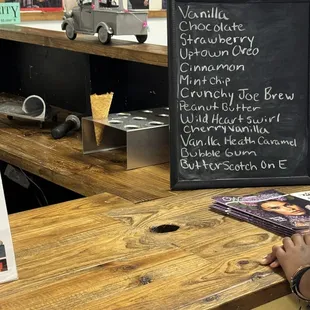 ITY
Vanilla
Chocolate
Strawberry
Uptown Oreo
Cinnamon
Mint chip
Crunchy Joe Brew
Peanut Butter
Wild Heart Swirl
cherryvanilla
Vanilla Heath Caramel
Bubble Gum
ButterScotch On E